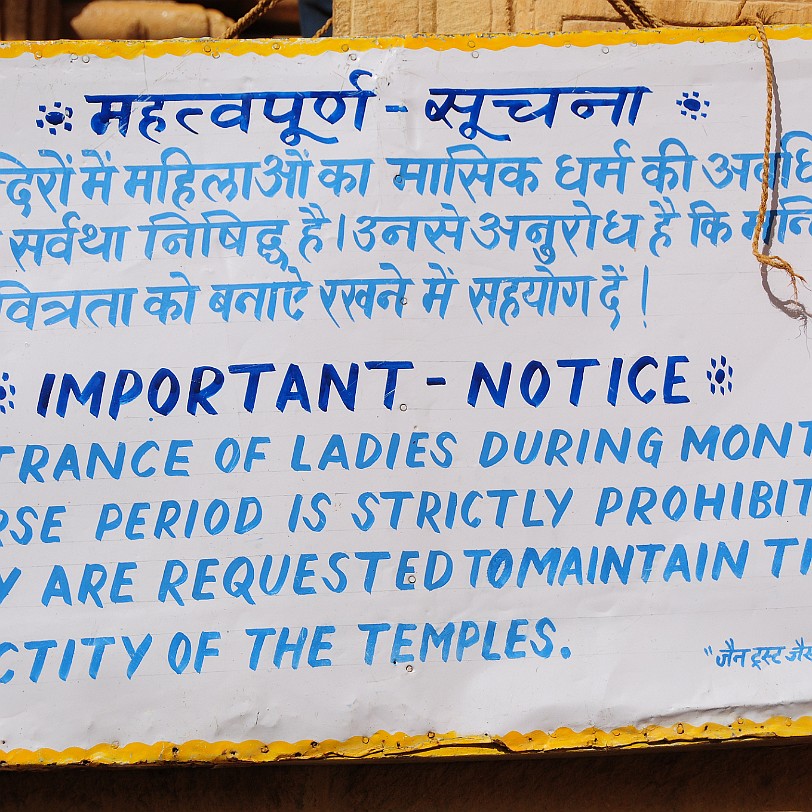 महत्वपूर्ण - सूचना
न्दिरों में महिलाओं का मासिक धर्म की अवधि
सर्वथा निषिद्ध है। उनसे अनुरोध है कि मन्दि
वित्रता को बनाऐ रखने में सहयोग दें।
IMPORTANT - NOTICE
TRANCE OF LADIES DURING MONT
RSE PERIOD IS STRICTLY PROHIBIT
Y ARE REQUESTED TO MAINTAIN TH
CTITY OF THE TEMPLES.
"जैन ट्रस्ट जैस